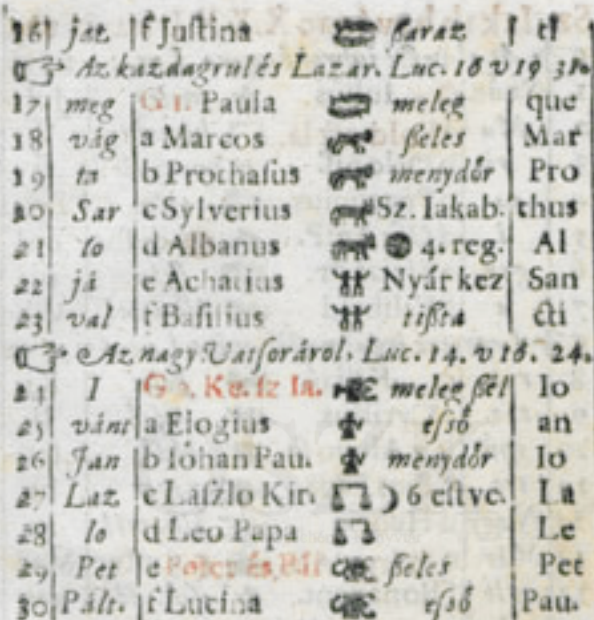 16 jat f Juſtina ßaraz tl
Az kazdagrul és Lazar. Luc. 16 v 19 31.
17 meg G 1. Paula meleg que
18 vág a Marcos ßeles Mar
19 ta b Prochaſus menydőr Pro
20 Sar c Sylverius Sz. Iakab. thus
21 lo d Albanus 4. reg. Al
22 já e Achatius Nyár kez San
23 val f Baſilius tißta cti
Az nagy Vatſorárol, Luc. 14. v 16. 24.
24 I G Ke. ſz Ia. meleg ßél Io
25 vánt a Elogius eſső an
26 Jan b Iohan Pau. menydőr Io
27 Laz c Laſzlo Kir. ) 6 eſtve. La
28 lo d Leo Papa Le
29 Pet e Peter és Pál ßeles Pet
30 Pált. f Lucina eſső Pau.